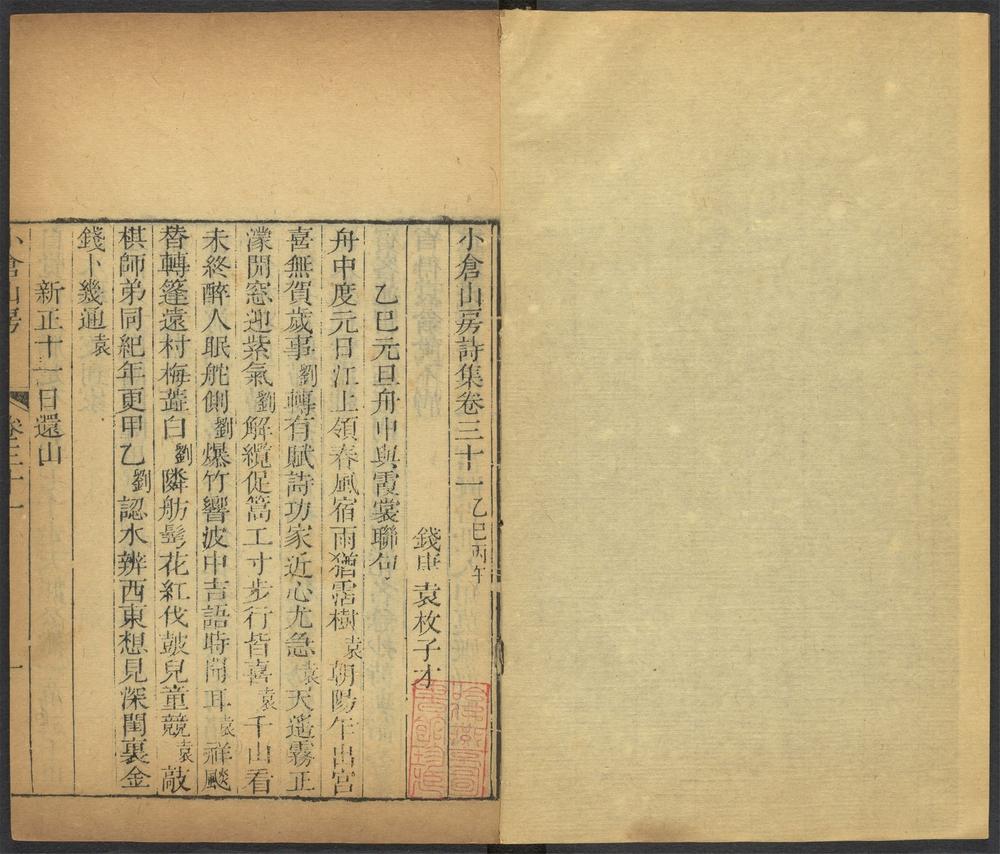 小倉山房詩集卷三十一 乙巳丙午
錢唐 袁枚子才
乙巳元旦舟中與霞裳聯句
舟中度元日江上領春風宿雨猶霑樹袁朝陽乍出宮
喜無賀歲事劉轉有賦詩功家近心尤急袁天遙霧正
濛開窓迎紫氣劉解纜促篙工寸步行皆喜袁千山看
未終醉人眠舵側劉爆竹響波中吉語時聞耳袁祥飈
替轉篷遠村梅蕋白劉隣舫髩花紅伐鼓兒童競袁敲
棋師弟同紀年更甲乙劉認水辨西東想見深閨裏金
錢卜幾通袁
新正十一日還山
小倉山房 卷三十一 一